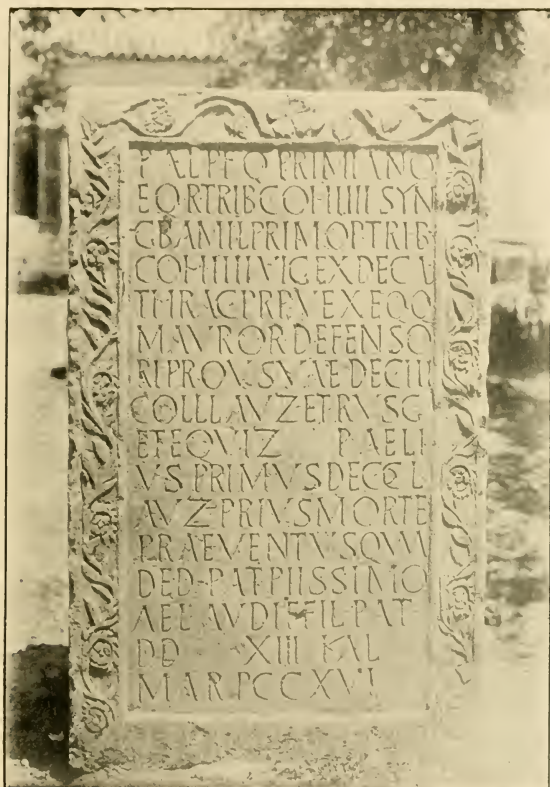 P AEL P F Q PRIMIANO
EQ R TRIB COH IIII SYN
GB A MIL PRIMOP TRIB
COH IIII VIG EX DEC A
THRAC PR P VEX EQQ
MAVROR DEFENSO
RI PROV SVAE DEC III
COLLL AVZ ET RVSG
ET EQVIZ P AELI
VS PRIMVS DEC C L
AVZ PRIVS MORTE
PRAEVENTVS QVAM
DED PAT PIISSIMO
AEL AVDIF FIL PAT
DD XIII KAL
MAR P CCXVI